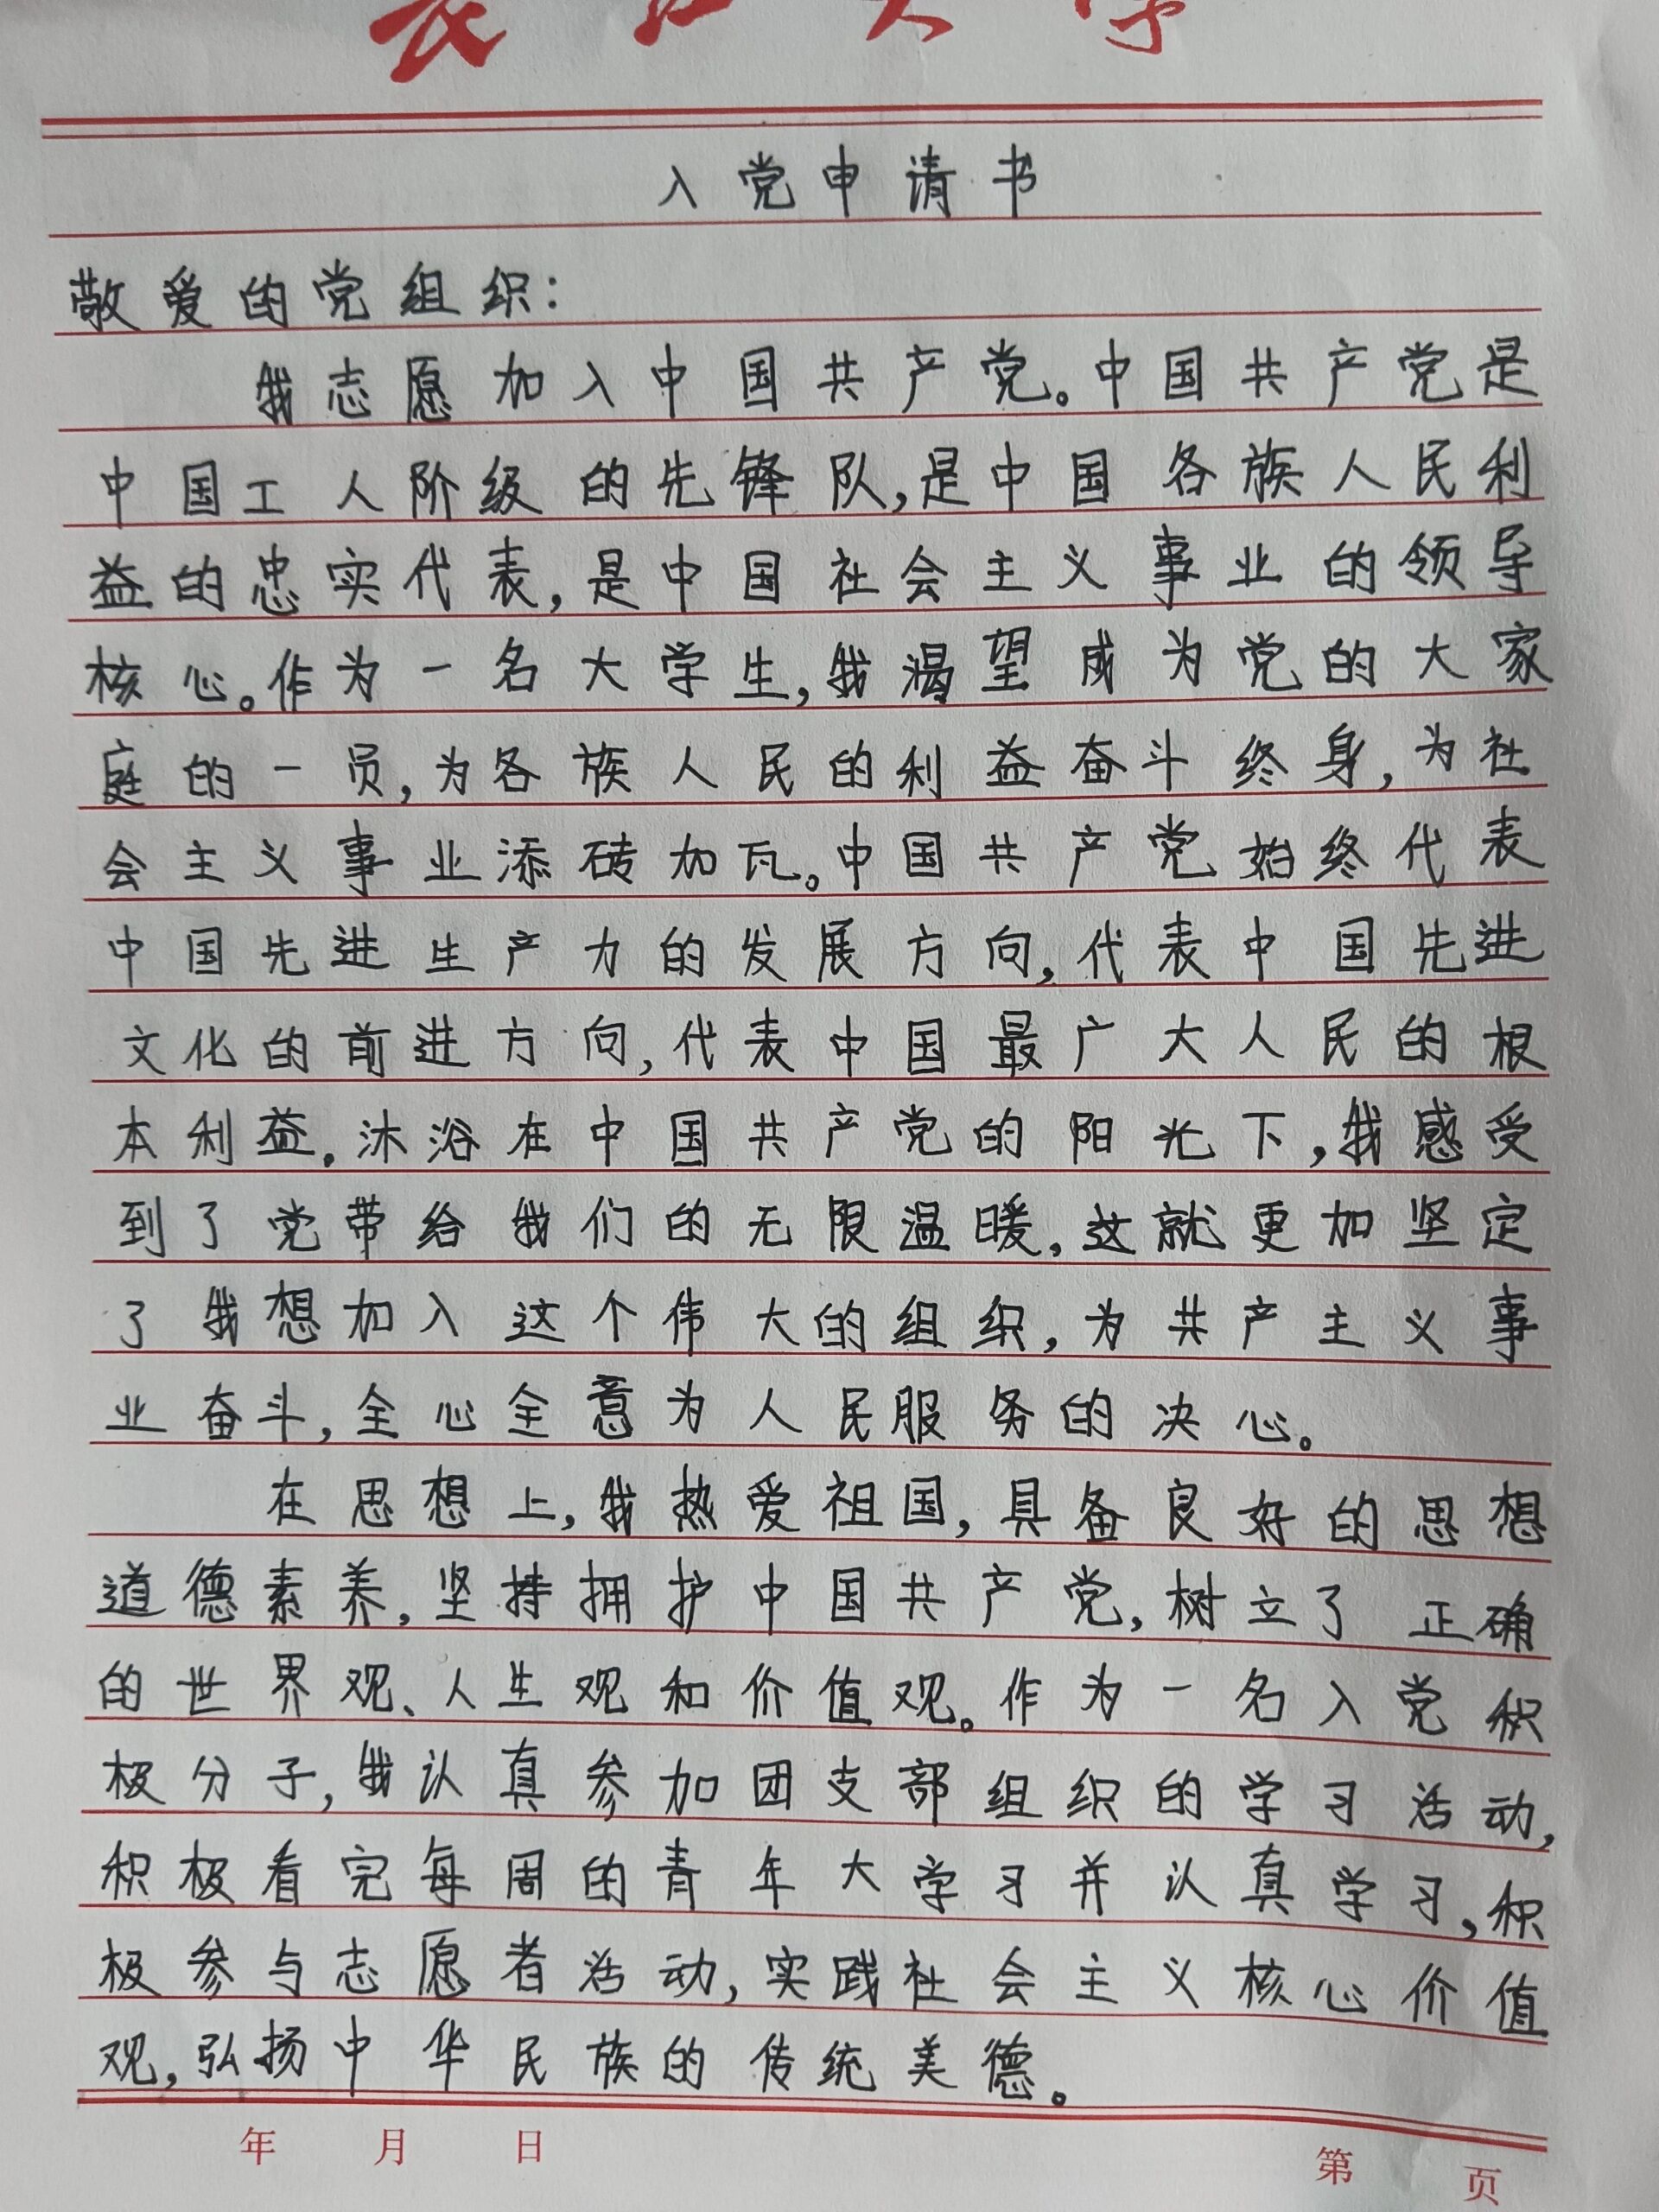 长江大学
入党申请书
敬爱的党组织：
我志愿加入中国共产党。中国共产党是
中国工人阶级的先锋队，是中国各族人民利
益的忠实代表，是中国社会主义事业的领导
核心。作为一名大学生，我渴望成为党的大家
庭的一员，为各族人民的利益奋斗终身，为社
会主义事业添砖加瓦。中国共产党始终代表
中国先进生产力的发展方向，代表中国先进
文化的前进方向，代表中国最广大人民的根
本利益。沐浴在中国共产党的阳光下，我感受
到了党带给我们的无限温暖，这就更加坚定
了我想加入这个伟大的组织，为共产主义事
业奋斗，全心全意为人民服务的决心。
在思想上，我热爱祖国，具备良好的思想
道德素养，坚持拥护中国共产党，树立了正确
的世界观、人生观和价值观。作为一名入党积
极分子，我认真参加团支部组织的学习活动，
积极看完每周的青年大学习并认真学习，积
极参与志愿者活动，实践社会主义核心价值
观，弘扬中华民族的传统美德。
年 月 日 第 页